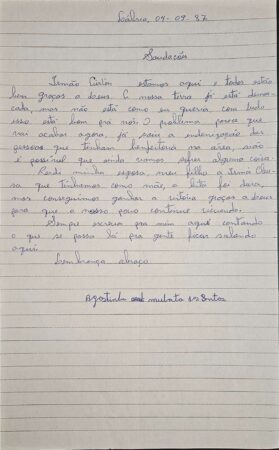 09-09-87
Saudações
Irmão estamos aqui e todos estão
bem graças a deus. E nossa terra já está demar
cada, mas não está como eu queria com tudo
isso está bem pra nós. O problema parece que
vai acabar agora, já a indenização das
pessoas que tenham benfeitoria na área, não
é possível que ainda vamos alguma coisa.
minha esposa, meu filho a Irmã
sa que tínhamos como mãe, a luta foi dura,
mas conseguimos ganhar a vitória graças a deus
para que o nosso povo continue vivendo.
Sempre escreva pra mim aqui contando
o que se passa lá pra gente ficar sabendo
aqui.
Lembrança abraço